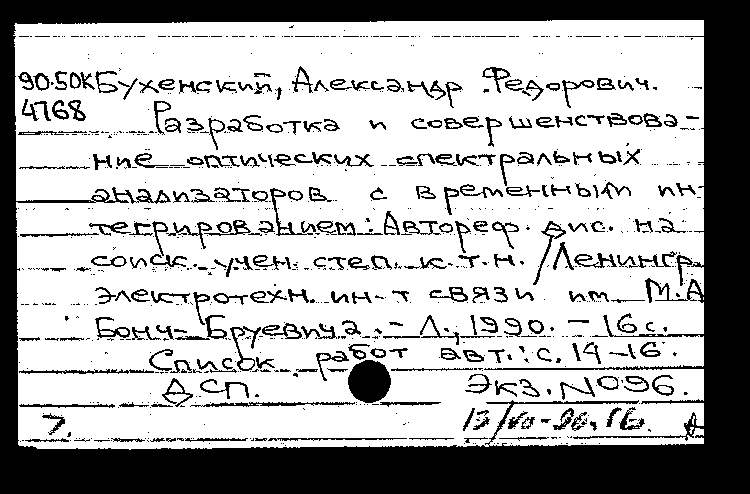 90-50К Бухенский, Александр Федорович.
4768 Разработка и совершенствова-
ние оптических спектральных
анализаторов с временным ин-
тегрированием: Автореф. дис. на
соиск. учен. степ. к.т.н. / Ленингр.
электротехн. ин-т связи им. М.А
Бонч-Бруевича. - Л., 1990. - 16 с.
Список работ авт.: с. 14-16.
ДСП. Экз. №096.